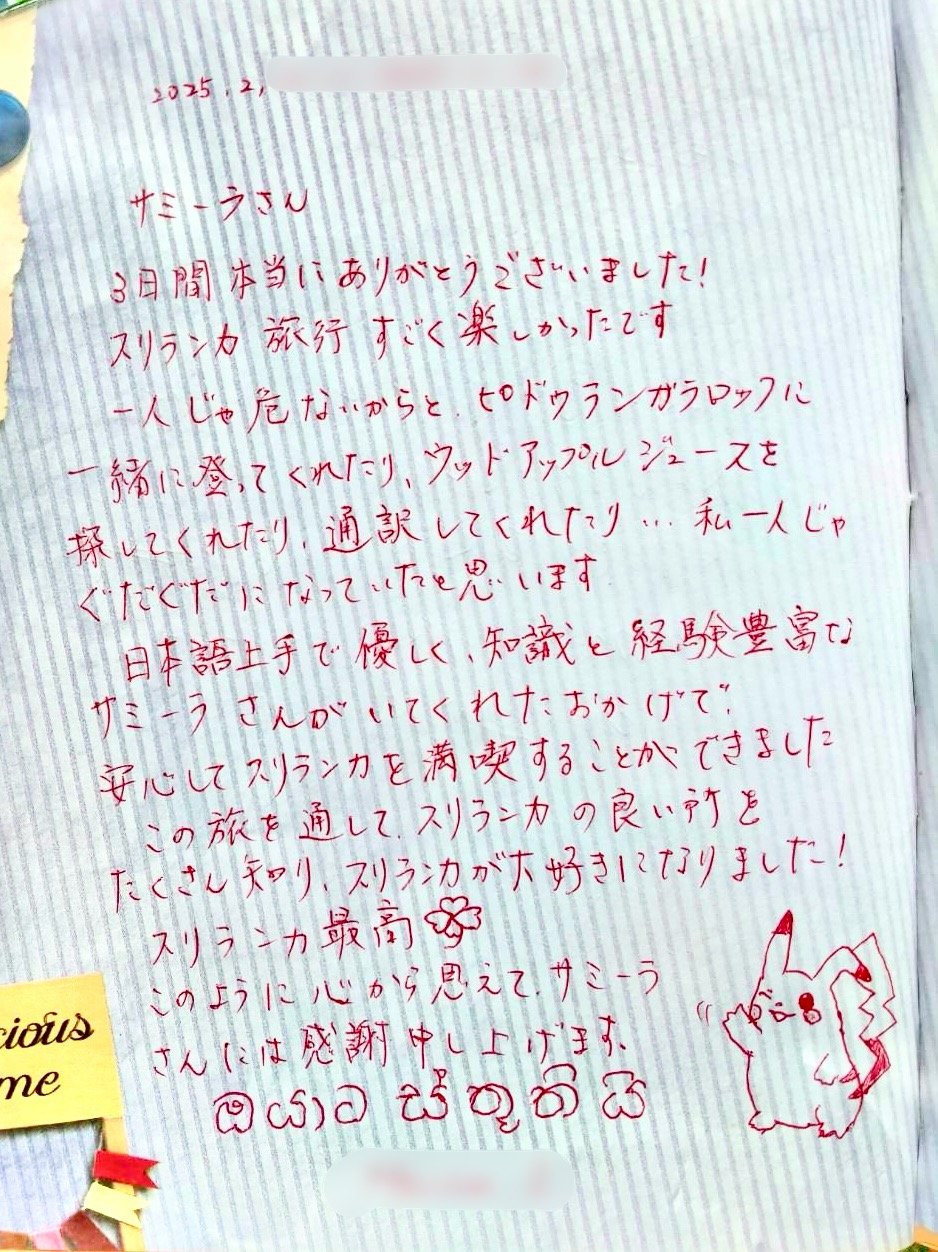 2025.2.
サミーラさん
3日間本当にありがとうございました!
スリランカ旅行すごく楽しかったです
一人じゃ危ないからと、ピドゥランガラロックに
一緒に登ってくれたり、ウッドアップルジュースを
探してくれたり、通訳してくれたり… 私一人じゃ
ぐだぐだになっていたと思います
日本語上手で優しく、知識と経験豊富な
サミーラさんがいてくれたおかげで、
安心してスリランカを満喫することができました
この旅を通して、スリランカの良い所を
たくさん知り、スリランカが大好きになりました!
スリランカ最高
このように心から思えて、サミーラ
さんには感謝申し上げます。
ඔයාට ස්තුතියි
cious
me